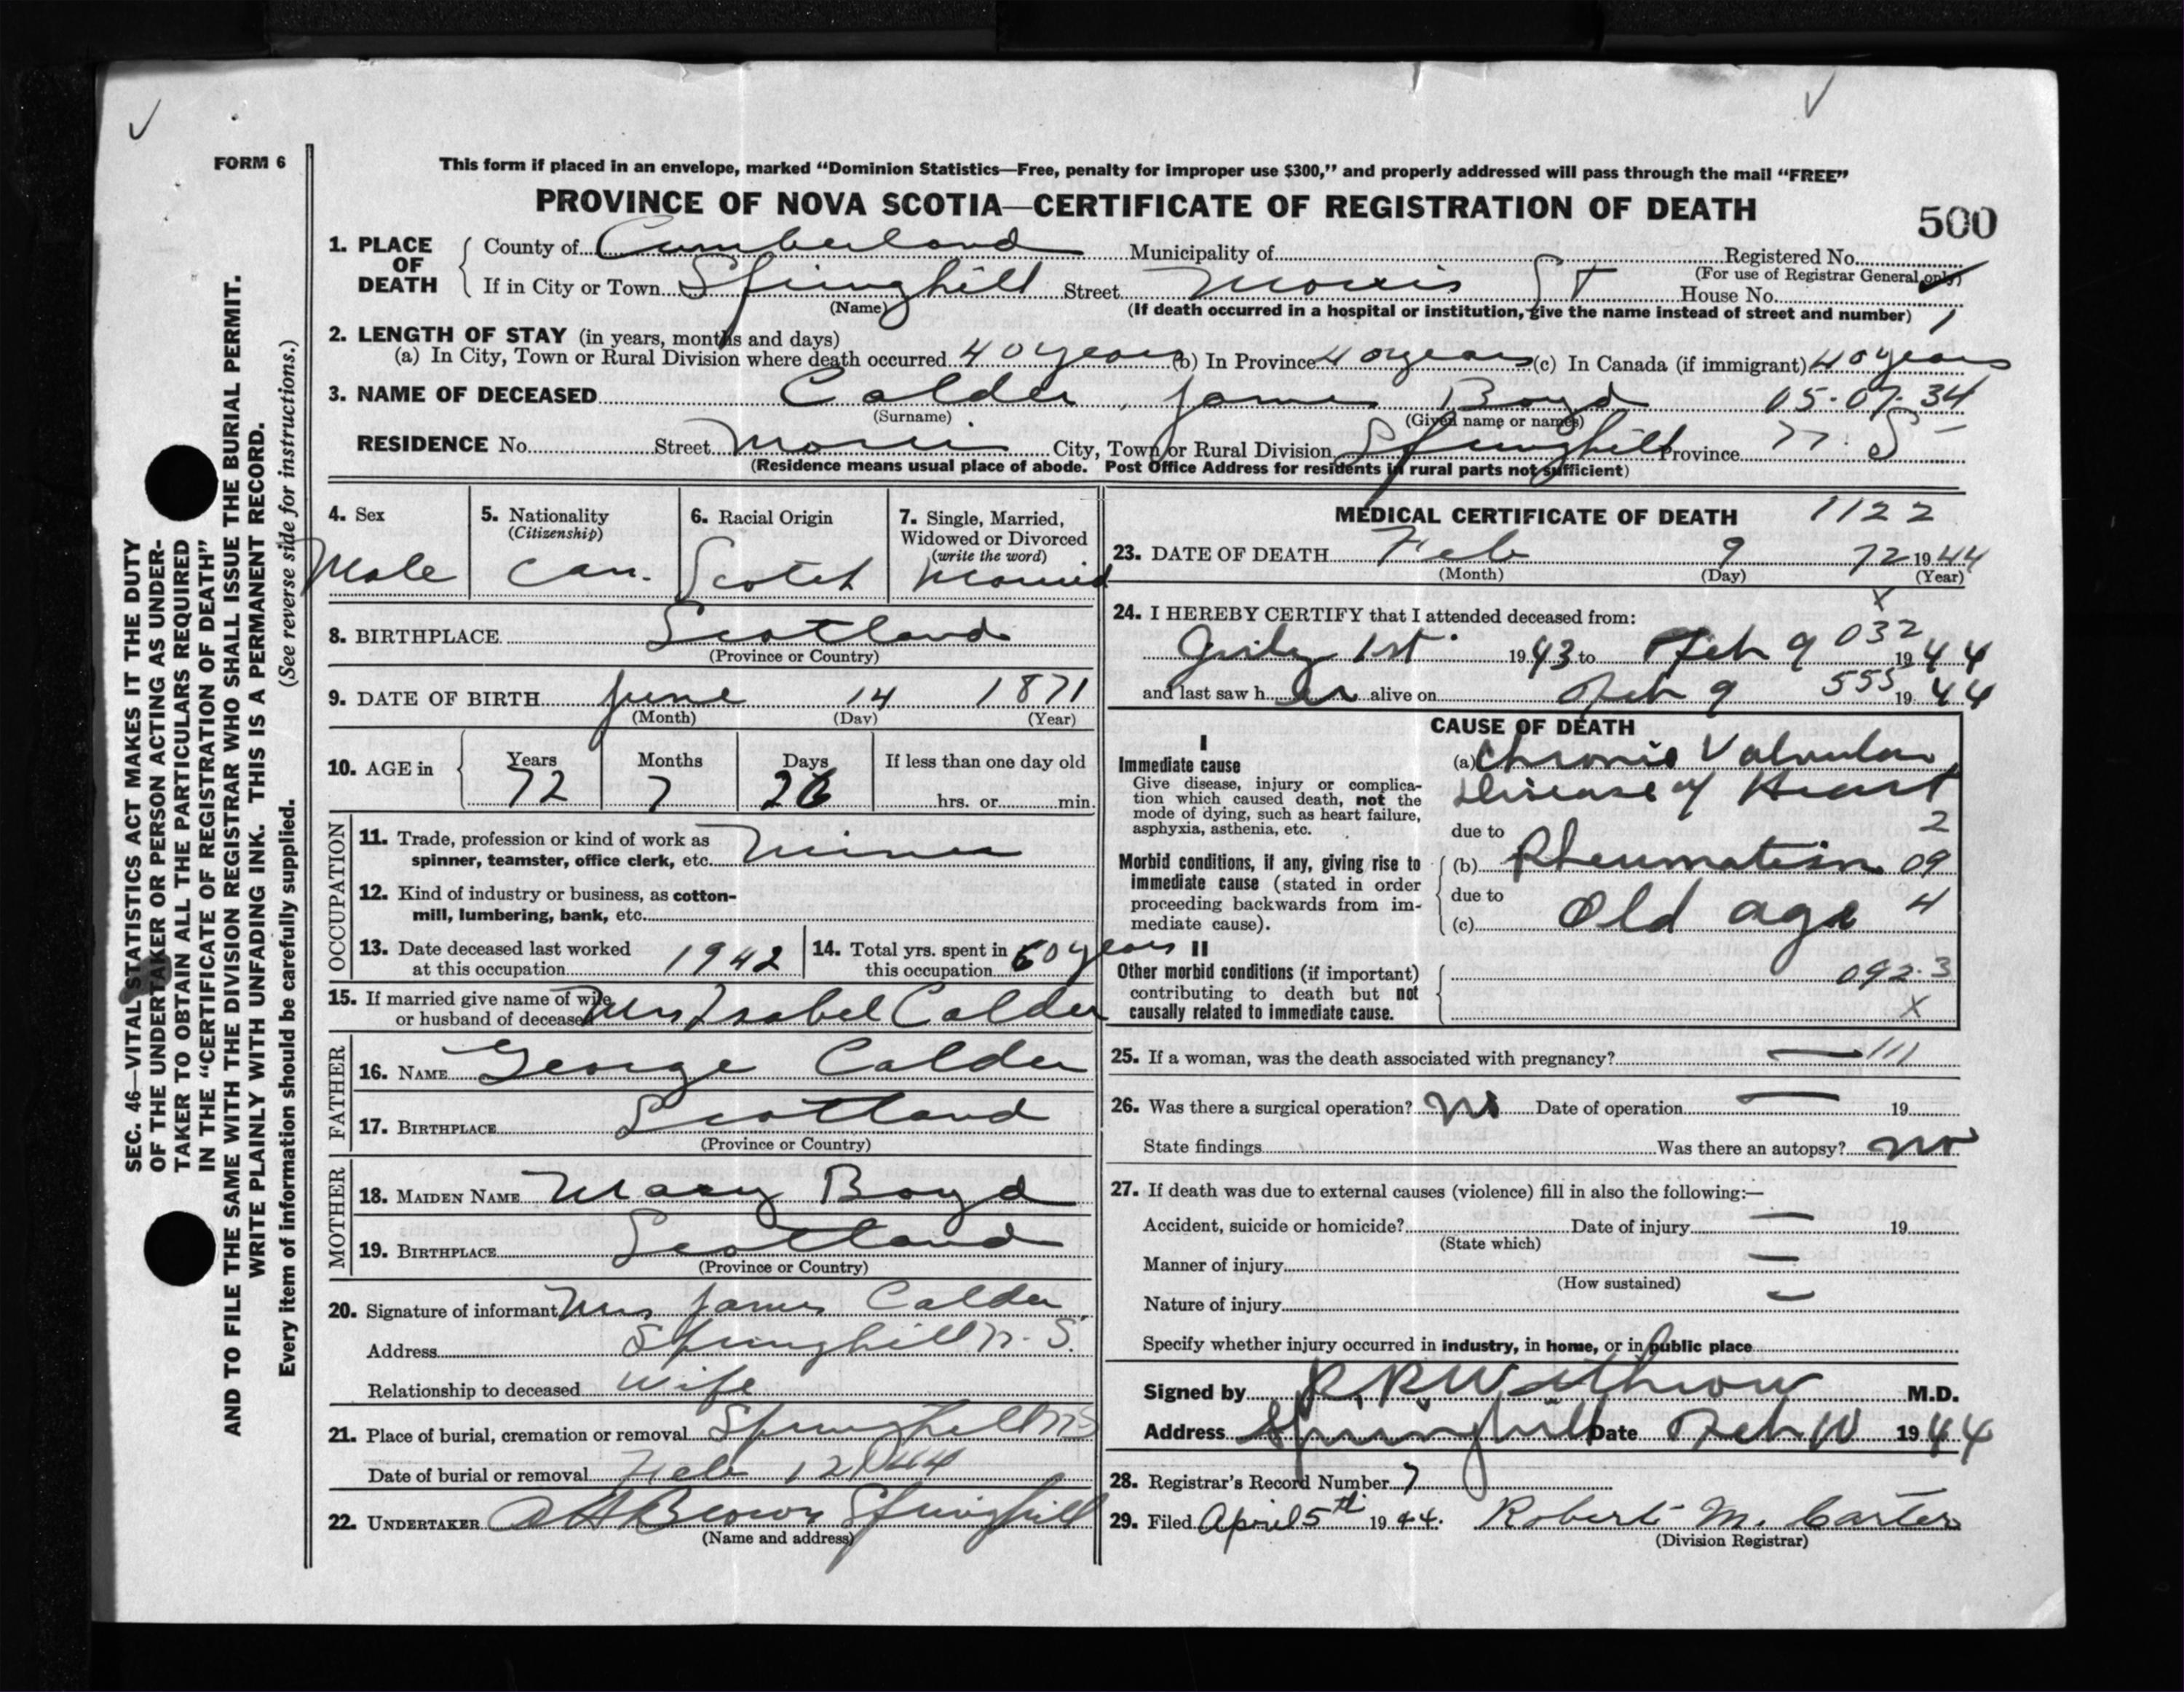 FORM 6
This form if placed in an envelope, marked “Dominion Statistics—Free, penalty for improper use $300,” and properly addressed will pass through the mail “FREE”
PROVINCE OF NOVA SCOTIA—CERTIFICATE OF REGISTRATION OF DEATH
500
1. PLACE OF DEATH
County of Cumberland Municipality of Registered No.
(For use of Registrar General only)
If in City or Town Springhill Street Morris St House No.
(Name) (If death occurred in a hospital or institution, give the name instead of street and number)
2. LENGTH OF STAY (in years, months and days)
(a) In City, Town or Rural Division where death occurred 40 years (b) In Province 40 years (c) In Canada (if immigrant) 40 years
3. NAME OF DECEASED Calder, James Boyd 05-07-34
(Surname) (Given name or names)
RESIDENCE No. Street Morris City, Town or Rural Division Springhill Province N. S
(Residence means usual place of abode. Post Office Address for residents in rural parts not sufficient)
4. Sex Male
5. Nationality (Citizenship) Can.
6. Racial Origin Scotch
7. Single, Married, Widowed or Divorced (write the word) Married
8. BIRTHPLACE Scotland
(Province or Country)
9. DATE OF BIRTH June 14 1871
(Month) (Day) (Year)
10. AGE in Years 72 Months 7 Days 26 If less than one day old
hrs. or min.
OCCUPATION
11. Trade, profession or kind of work as
spinner, teamster, office clerk, etc. Miner
12. Kind of industry or business, as cotton-
mill, lumbering, bank, etc.
13. Date deceased last worked
at this occupation 1942
14. Total yrs. spent in
this occupation 60 years
15. If married give name of wife
or husband of deceased Mrs Isabel Calder
FATHER
16. NAME George Calder
17. BIRTHPLACE Scotland
(Province or Country)
MOTHER
18. MAIDEN NAME Mary Boyd
19. BIRTHPLACE Scotland
(Province or Country)
20. Signature of informant Mrs James Calder
Address Springhill N. S.
Relationship to deceased Wife
21. Place of burial, cremation or removal Springhill NS
Date of burial or removal Feb 12 1944
22. UNDERTAKER A H Brown Springhill
(Name and address)
MEDICAL CERTIFICATE OF DEATH 1122
23. DATE OF DEATH Feb 9 72 1944
(Month) (Day) (Year)
X
24. I HEREBY CERTIFY that I attended deceased from:
032
July 1st 1943 to Feb 9 1944
and last saw h alive on Feb 9 555 1944
CAUSE OF DEATH
I
Immediate cause
Give disease, injury or complica-
tion which caused death, not the
mode of dying, such as heart failure,
asphyxia, asthenia, etc.
(a) Chronic Valvular
Disease of Heart
due to 2
Morbid conditions, if any, giving rise to
immediate cause (stated in order
proceeding backwards from im-
mediate cause).
(b) Rheumatism 09
due to 4
(c) Old age
II
Other morbid conditions (if important)
contributing to death but not
causally related to immediate cause.
092.3
X
25. If a woman, was the death associated with pregnancy? — 111
26. Was there a surgical operation? No Date of operation — 19
State findings Was there an autopsy? No
27. If death was due to external causes (violence) fill in also the following:—
Accident, suicide or homicide? Date of injury — 19
(State which)
Manner of injury —
(How sustained)
Nature of injury —
Specify whether injury occurred in industry, in home, or in public place
Signed by R. R. Withrow M.D.
Address Springhill Date Feb 10 1944
28. Registrar's Record Number 7
29. Filed April 5th 1944. Robert M. Carter
(Division Registrar)
SEC. 46—VITAL STATISTICS ACT MAKES IT THE DUTY
OF THE UNDERTAKER OR PERSON ACTING AS UNDER-
TAKER TO OBTAIN ALL THE PARTICULARS REQUIRED
IN THE “CERTIFICATE OF REGISTRATION OF DEATH”
AND TO FILE THE SAME WITH THE DIVISION REGISTRAR WHO SHALL ISSUE THE BURIAL PERMIT.
WRITE PLAINLY WITH UNFADING INK. THIS IS A PERMANENT RECORD.
Every item of information should be carefully supplied. (See reverse side for instructions.)